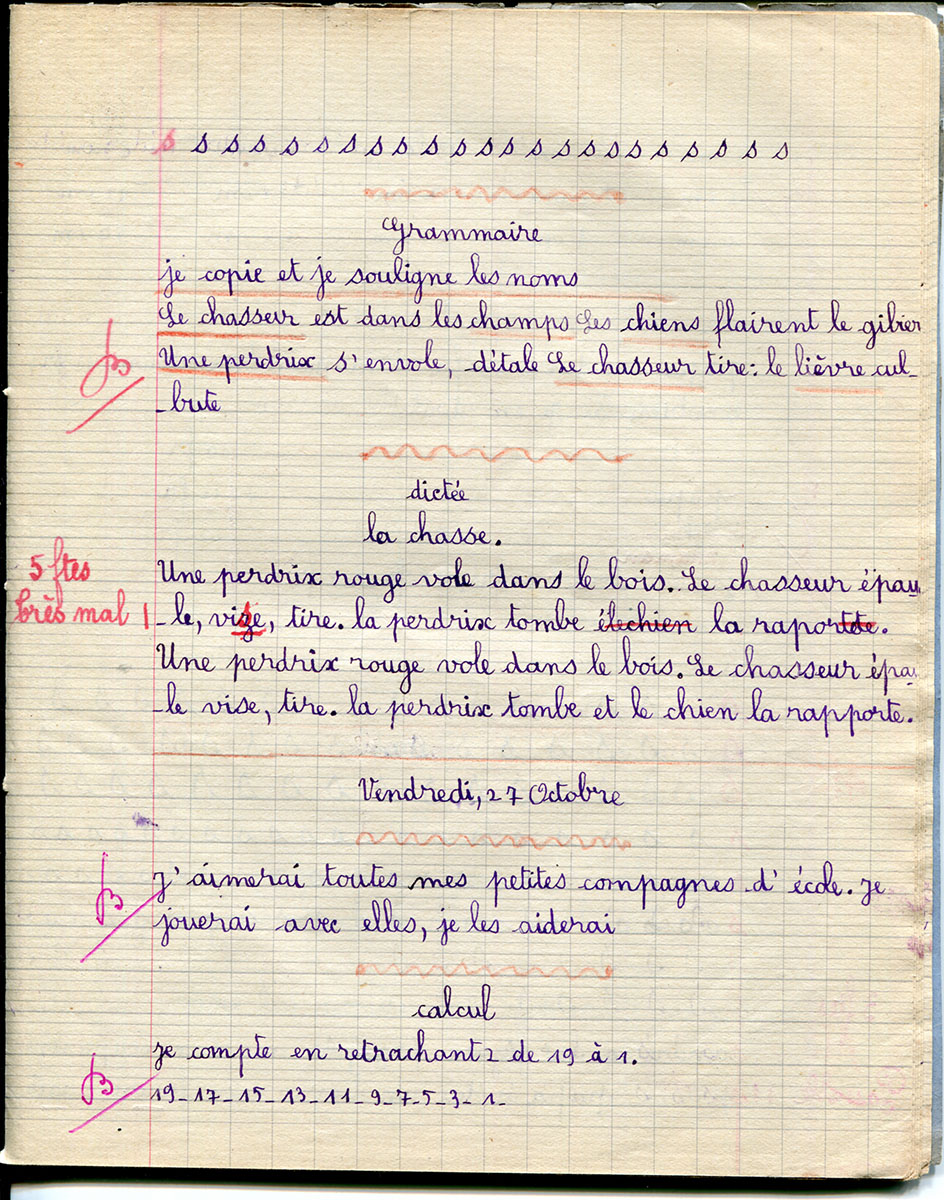 s s s s s s s s s s s s s s s s s s s s s s s
Grammaire
je copie et je souligne les noms
Le chasseur est dans les champs Les chiens flairent le gibier
B
Une perdrix s'envole, détale Le chasseur tire: le lièvre cul-
-bute
dictée
la chasse.
5 ftes
très mal !
Une perdrix rouge vole dans le bois. Le chasseur épau-
-le, vise, tire. la perdrix tombe élechien la raportte.
Une perdrix rouge vole dans le bois. Le chasseur épau-
-le vise, tire. la perdrix tombe et le chien la rapporte.
Vendredi, 27 Octobre
B
J'aimerai toutes mes petites compagnes d'école. Je
jouerai avec elles, je les aiderai
calcul
Je compte en retrachant 2 de 19 à 1.
B
19-17-15-13-11-9-7-5-3-1-